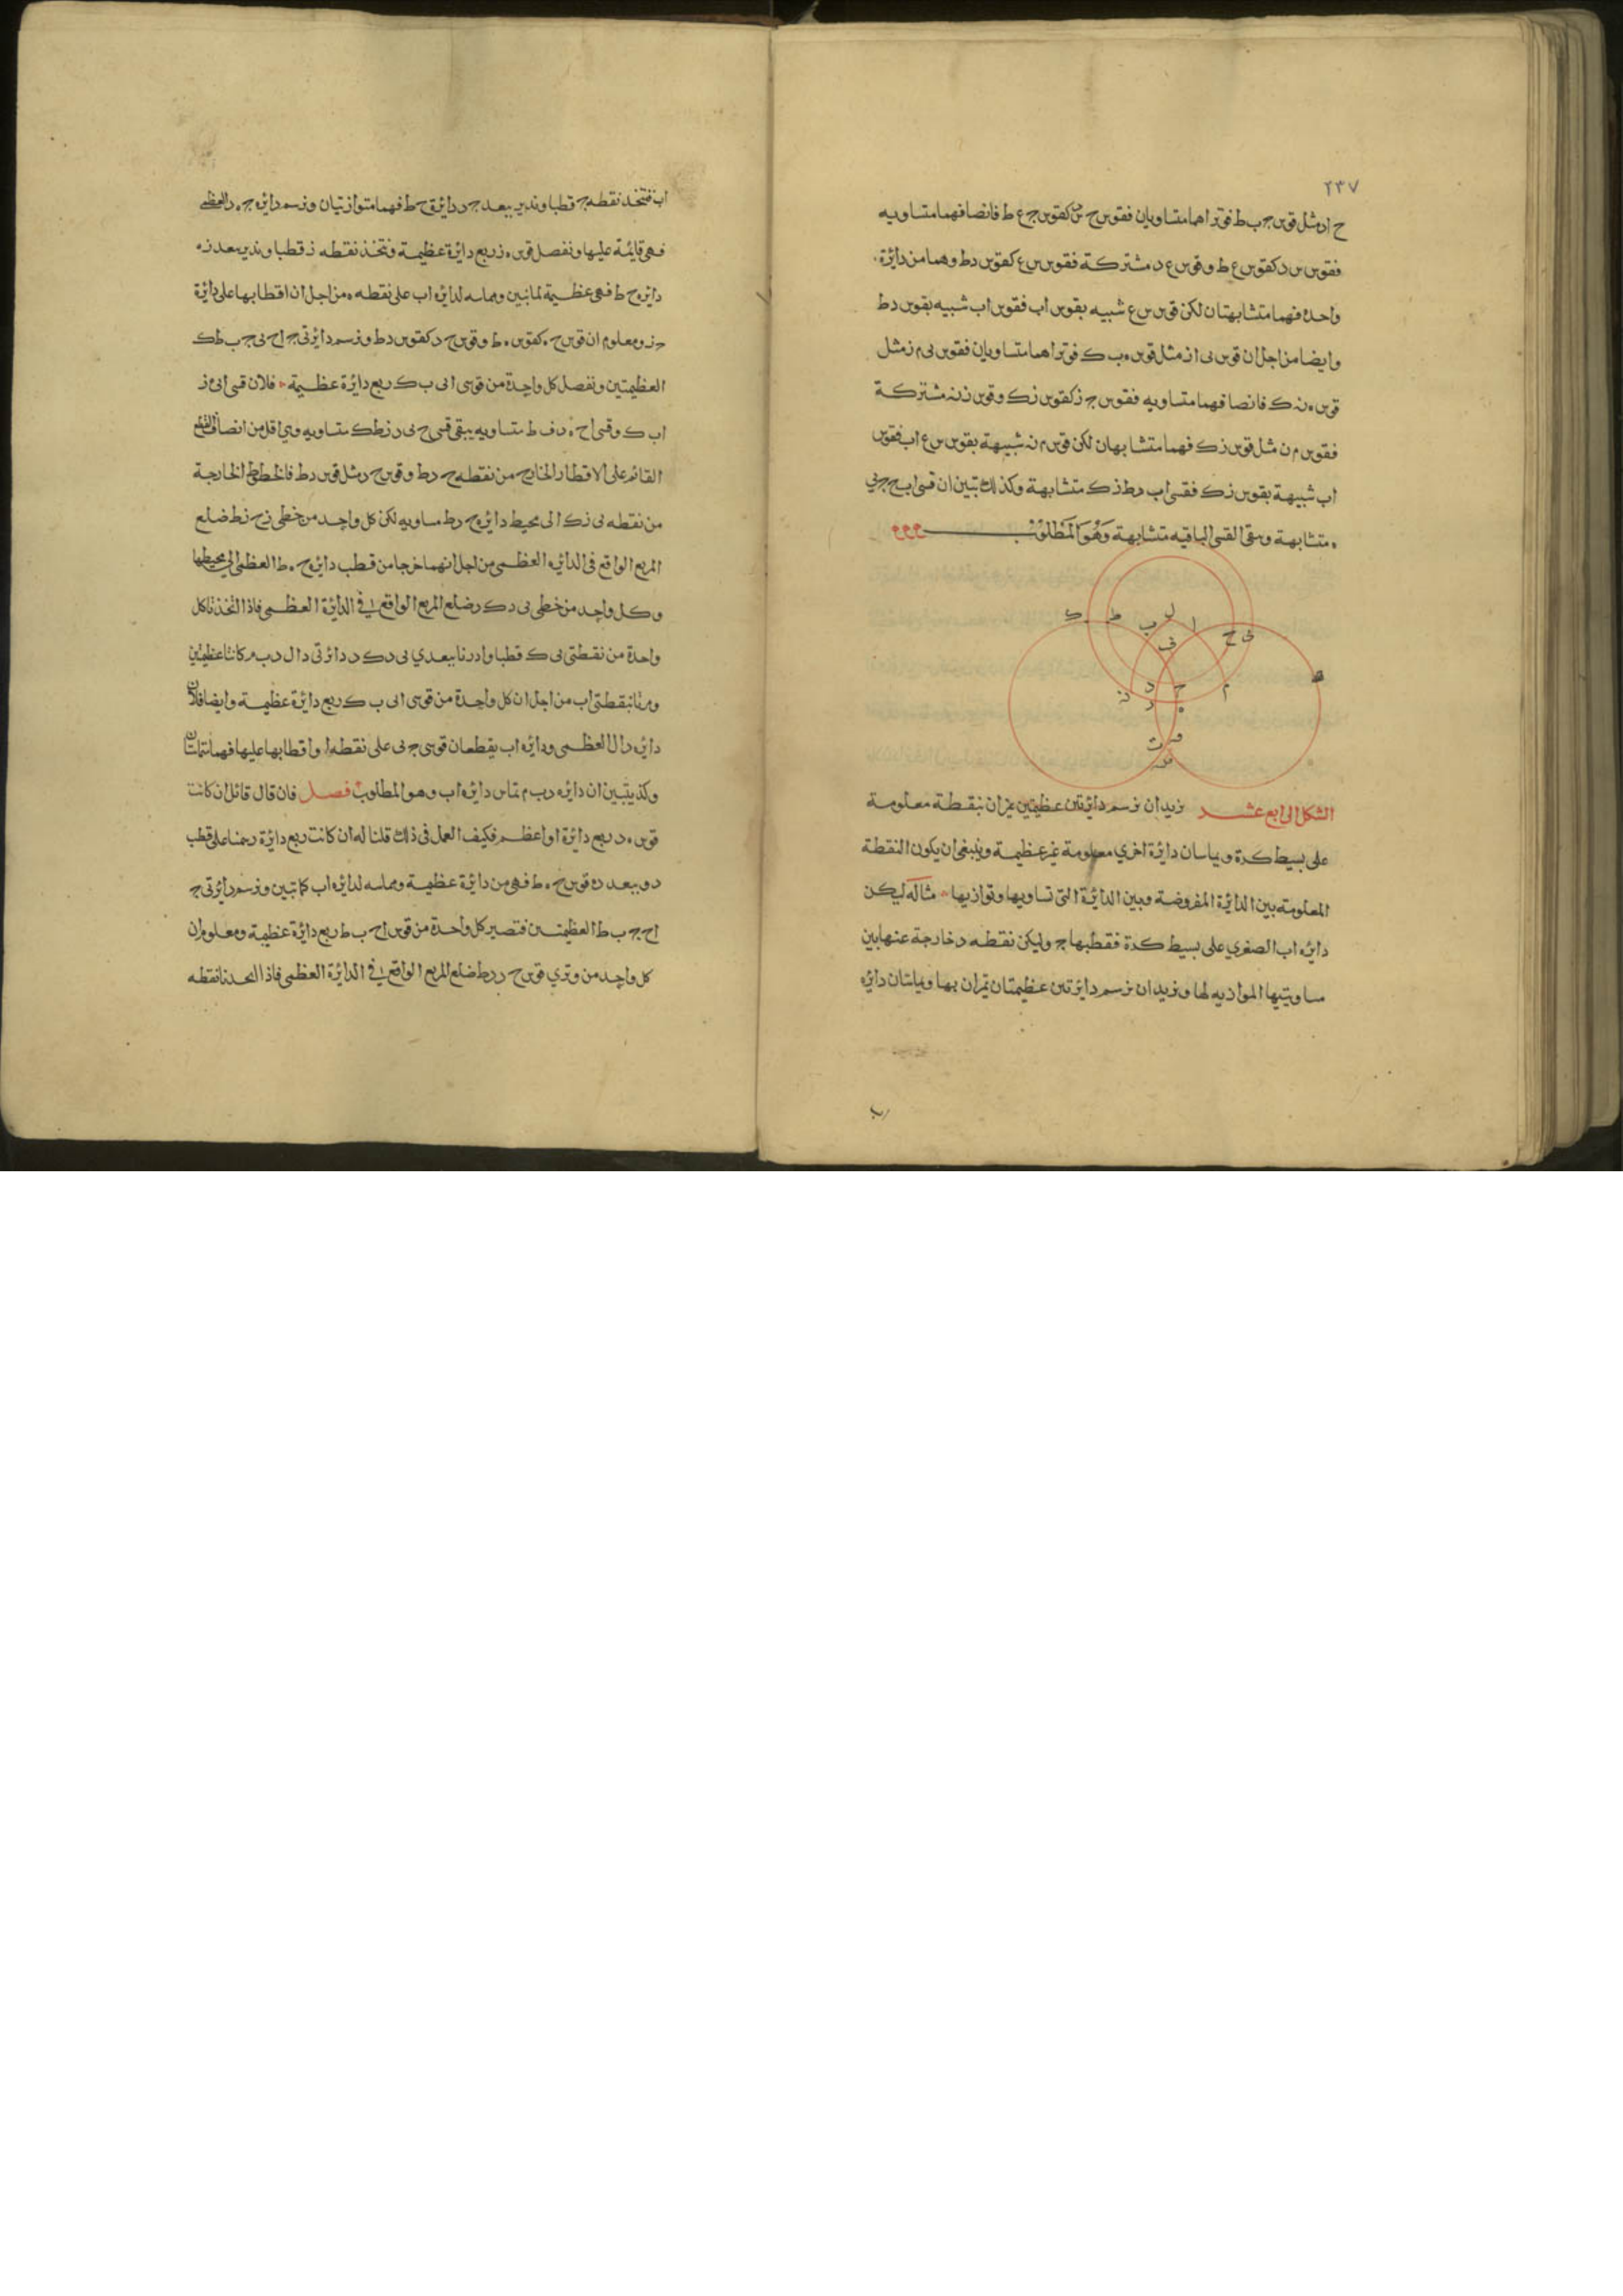 ٢٣٧
ح اد مثل قوس ج ب ط فوتراهما متساويان فقوس ح س كقوس ج ع ط فانصافهما متساويه
فقوس س د كقوس ع ط وقوس ع د مشتركة فقوس س ع كقوس د ط وهما من دايرة
واحدة فهما متشابهتان لكن قوس س ع شبيه بقوس اب فقوس اب شبيه بقوس د ط
وايضا من اجل ان قوس ى ا ز مثل قوس ه ب ك فوتراهما متساويان فقوس ى م ز مثل
قوس ه ن ك فانصافهما متساويه فقوس ج ز كقوس ز ك وقوس ز ن مشتركة
فقوس م ن مثل قوس ز ك فهما متشابهان لكن قوس م ن شبيهة بقوس س ع اب فقوس
اب شبيهة بقوس ز ك فقسى اب د ط ز ك متشابهة وكذلك تبين ان قسى اب ح ج ى
ه متشابهة وبقى القسى الباقيه متشابهة وَهُوَ المَطْلوُبْ
ك ط ب ل ا ح ى
ف
ن د ج م
ر ه
الشكل الرابع عشر نريد ان نرسم دايرتين عظيمتين يمران بنقطة معلومة
على بسيط كرة ويماسان دايرة اخري معلومة غير عظيمة وينبغى ان يكون النقطة
المعلومة بين الدايرة المفروضة وبين الدايرة التى تساويها وتوازيها مثاله ليكن
دايره اب الصغري على بسيط كرة فقطبها ج وليكن نقطه د خارجة عنها بين
مساويتيها الموازيه لها ونريد ان نرسم دايرتين عظيمتان يمران بها ويماسان دايره
اب فنتخذ نقطه ج قطبا وندير ببعد ج د دايرة ح ط فهما متوازيتان ونرسم دايره ج ه د العظمى
فهى قايمة عليها ونفصل قوس ه ز ربع دايرة عظيمة ونتخذ نقطه ز قطبا وندير ببعد ز ه
دايره ح ط فهى عظيمة لما تبين ومماسه لدايره اب على نقطه ه من اجل ان اقطابها على دايرة
ج ز ومعلوم ان قوس ح ه كقوس ه ط وقوس ح د كقوس د ط ونرسم دايرتى ج ا ح ى ج ب ط ك
العظيمتين ونفصل كل واحدة من قوسى ا ى ب ك ربع دايرة عظيمة فلان قسى ا ى ه ز
اب ك وقسى ا ح ه د ف ط متساويه يبقى قسى ح ى د ز ط ك متساويه وهي اقل من انصاف القطع
القائم على الاقطار الخارج من نقطه ح د ط وقوس ح د مثل قوس د ط فالخطوط الخارجة
من نقطه ى ز ك الى محيط دايره ح د ط مساويه لكن كل واحد من خطى ز ح ز ط ضلع
المربع الواقع فى الدايره العظمى من اجل انهما خرجا من قطب دايره ح ه ط العظمى الى محيطها
وكل واحد من خطى ى د ك د ضلع المربع الواقع فى الدايرة العظمى فاذا اتخذنا كل
واحدة من نقطتى ى ك قطبا وادرنا ببعدي ى د ك د دائرتى د ا ل د ب م كانتا عظيمتين
ومرتا بنقطتى اب من اجل ان كل واحدة من قوسى ا ى ب ك ربع دايرة عظيمة وايضا فلان
دايره د ا ل العظمى ودايره اب يقطعان قوسى ج ى على نقطه ا واقطابها عليها فهما يتماسان
وكذ يتبين ان دايره د ب م تماس دايره اب وهو المطلوب فصل فان قال قائل ان كانت
قوس ه د ربع دايرة او اعظم فكيف العمل فى ذلك قلنا له ان كانت ربع دايرة رسمنا على قطب
د وببعد د ه قوس ح ه ط فهى من دايرة عظيمة ومماسه لدايره اب كما تبين ونرسم دايرتى ج
ا ح ج ب ط العظيمتين فتصير كل واحدة من قوس ا ح ب ط ربع دايرة عظيمة ومعلوم ان
كل واحد من وتري قوس ح د د ط ضلع المربع الواقع فى الدايرة العظمى فاذا اتخذنا نقطه